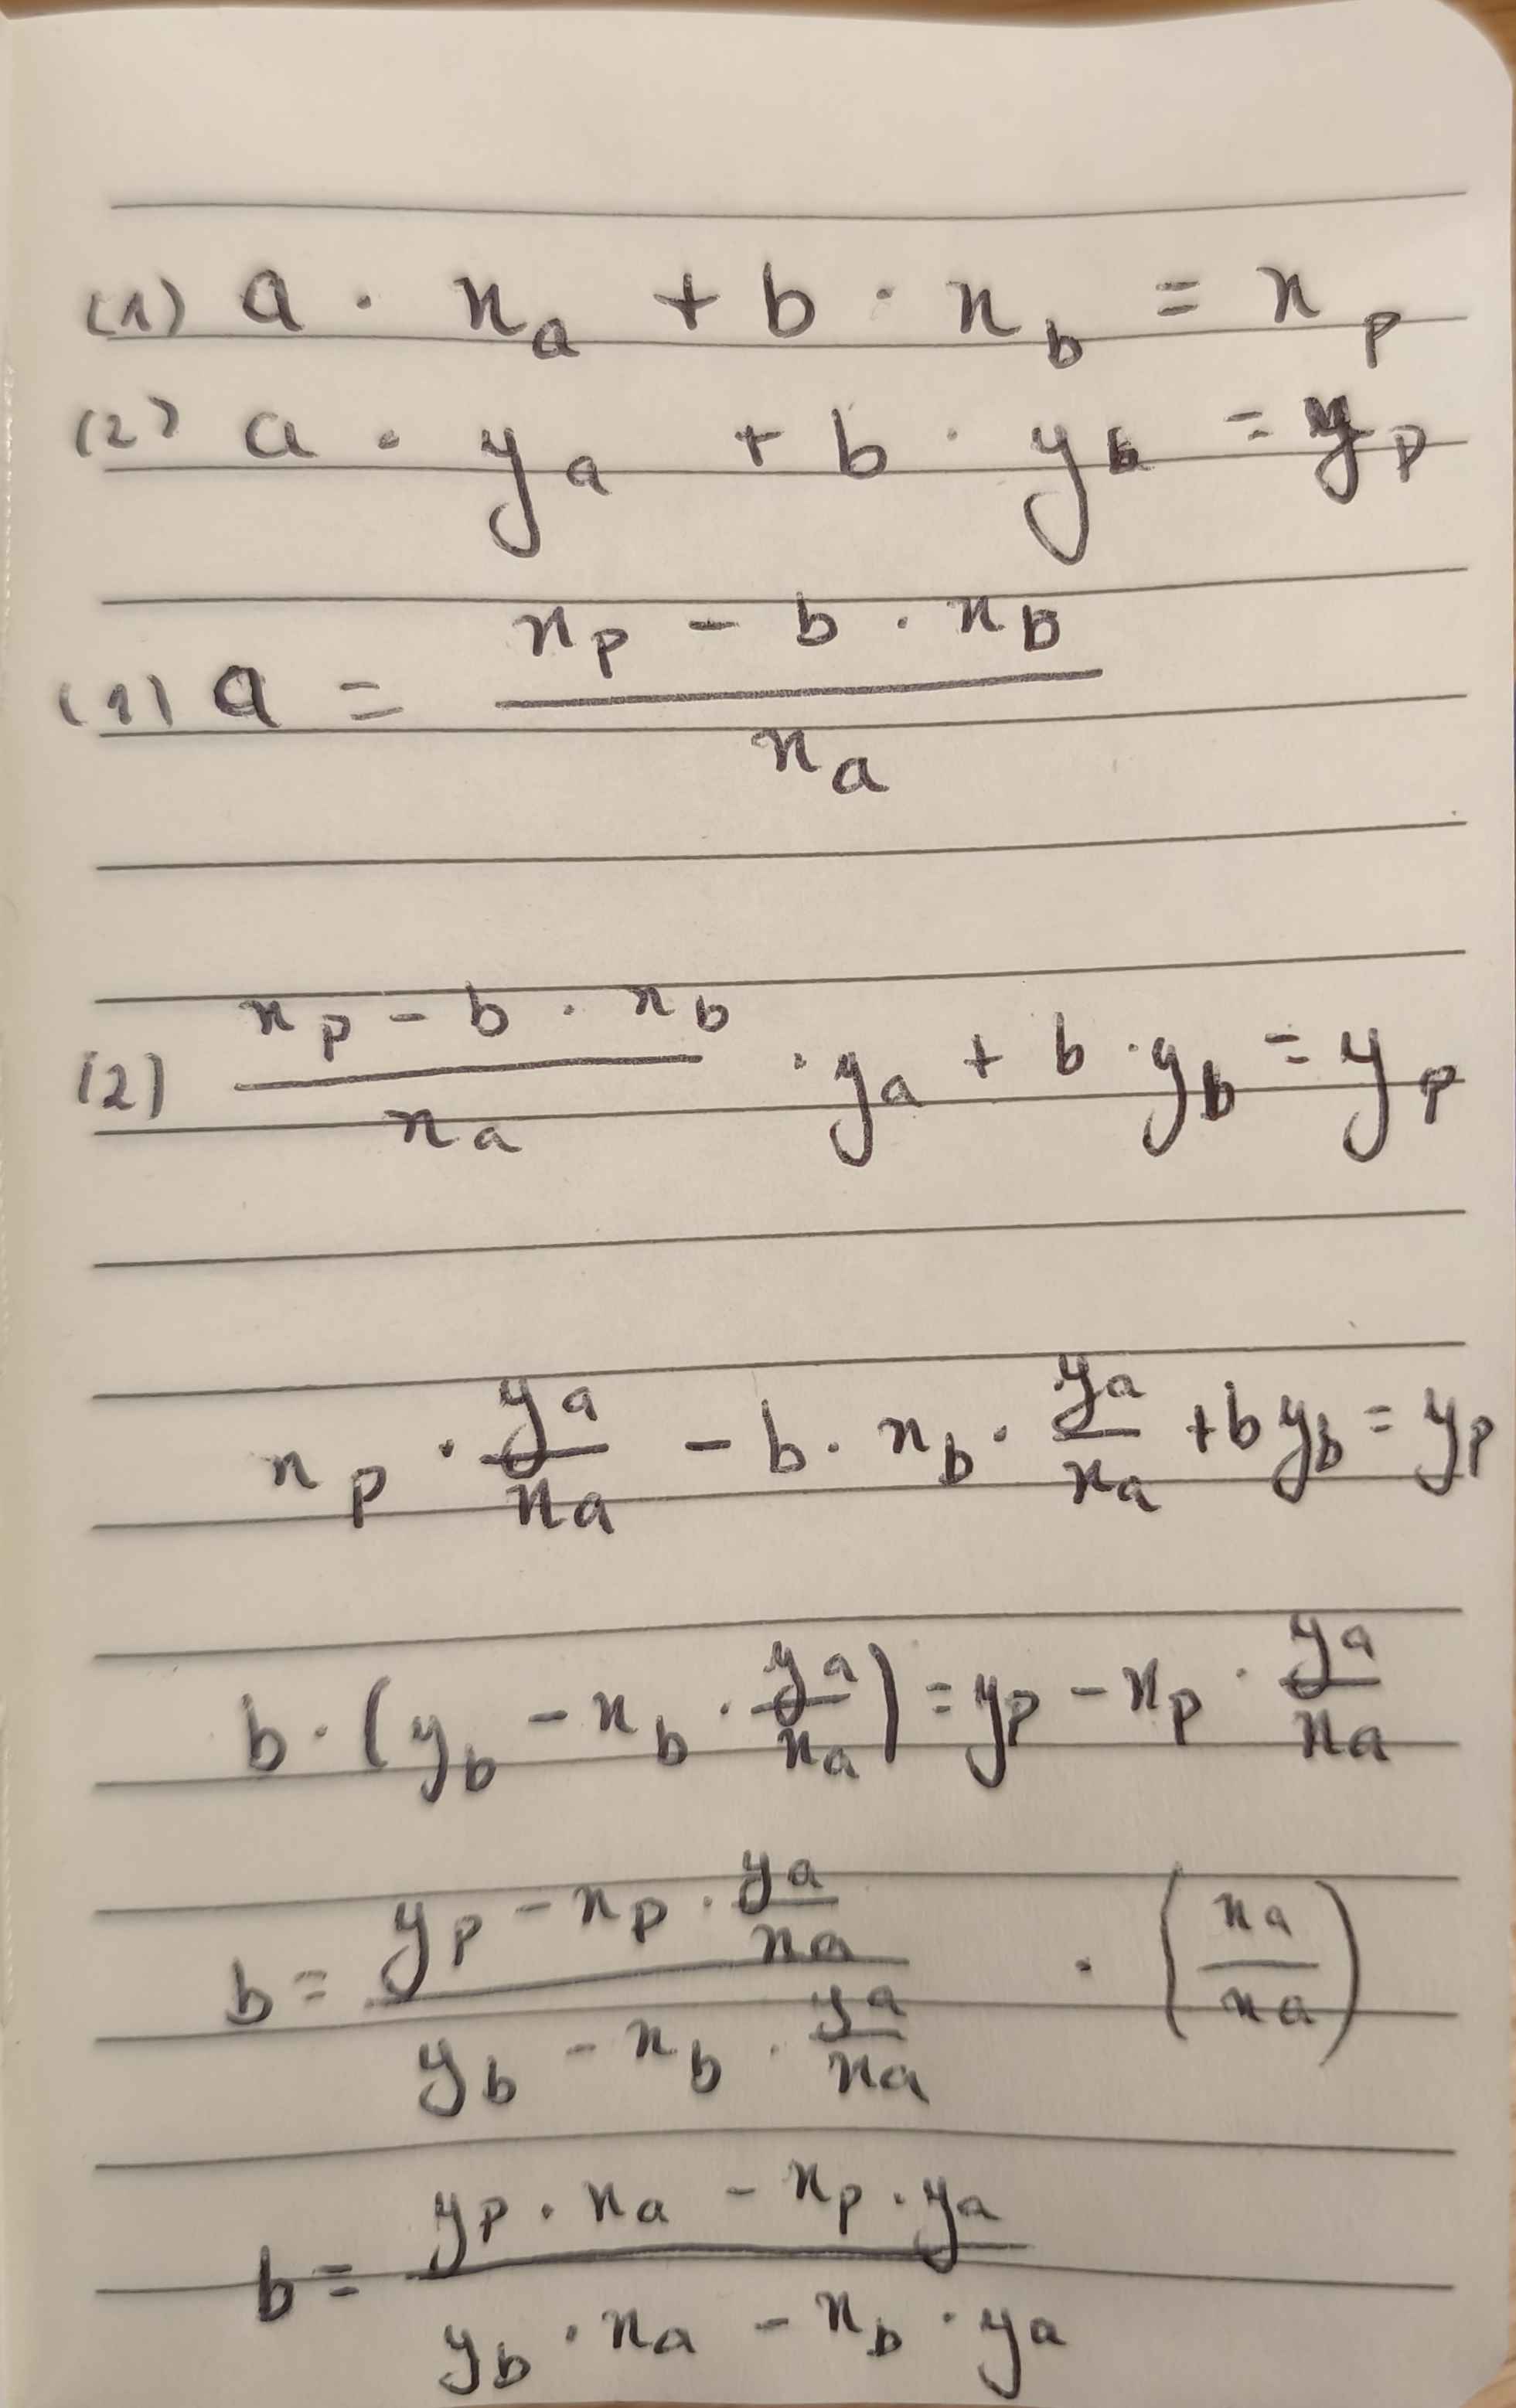 (1) a · x_a + b · x_b = x_p
(2) a · y_a + b · y_b = y_p
(1) a = (x_p - b · x_b) / x_a
(2) (x_p - b · x_b) / x_a · y_a + b · y_b = y_p
x_p · y_a / x_a - b · x_b · y_a / x_a + b y_b = y_p
b · (y_b - x_b · y_a / x_a) = y_p - x_p · y_a / x_a
b = (y_p - x_p · y_a / x_a) / (y_b - x_b · y_a / x_a) · (x_a / x_a)
b = (y_p · x_a - x_p · y_a) / (y_b · x_a - x_b · y_a)